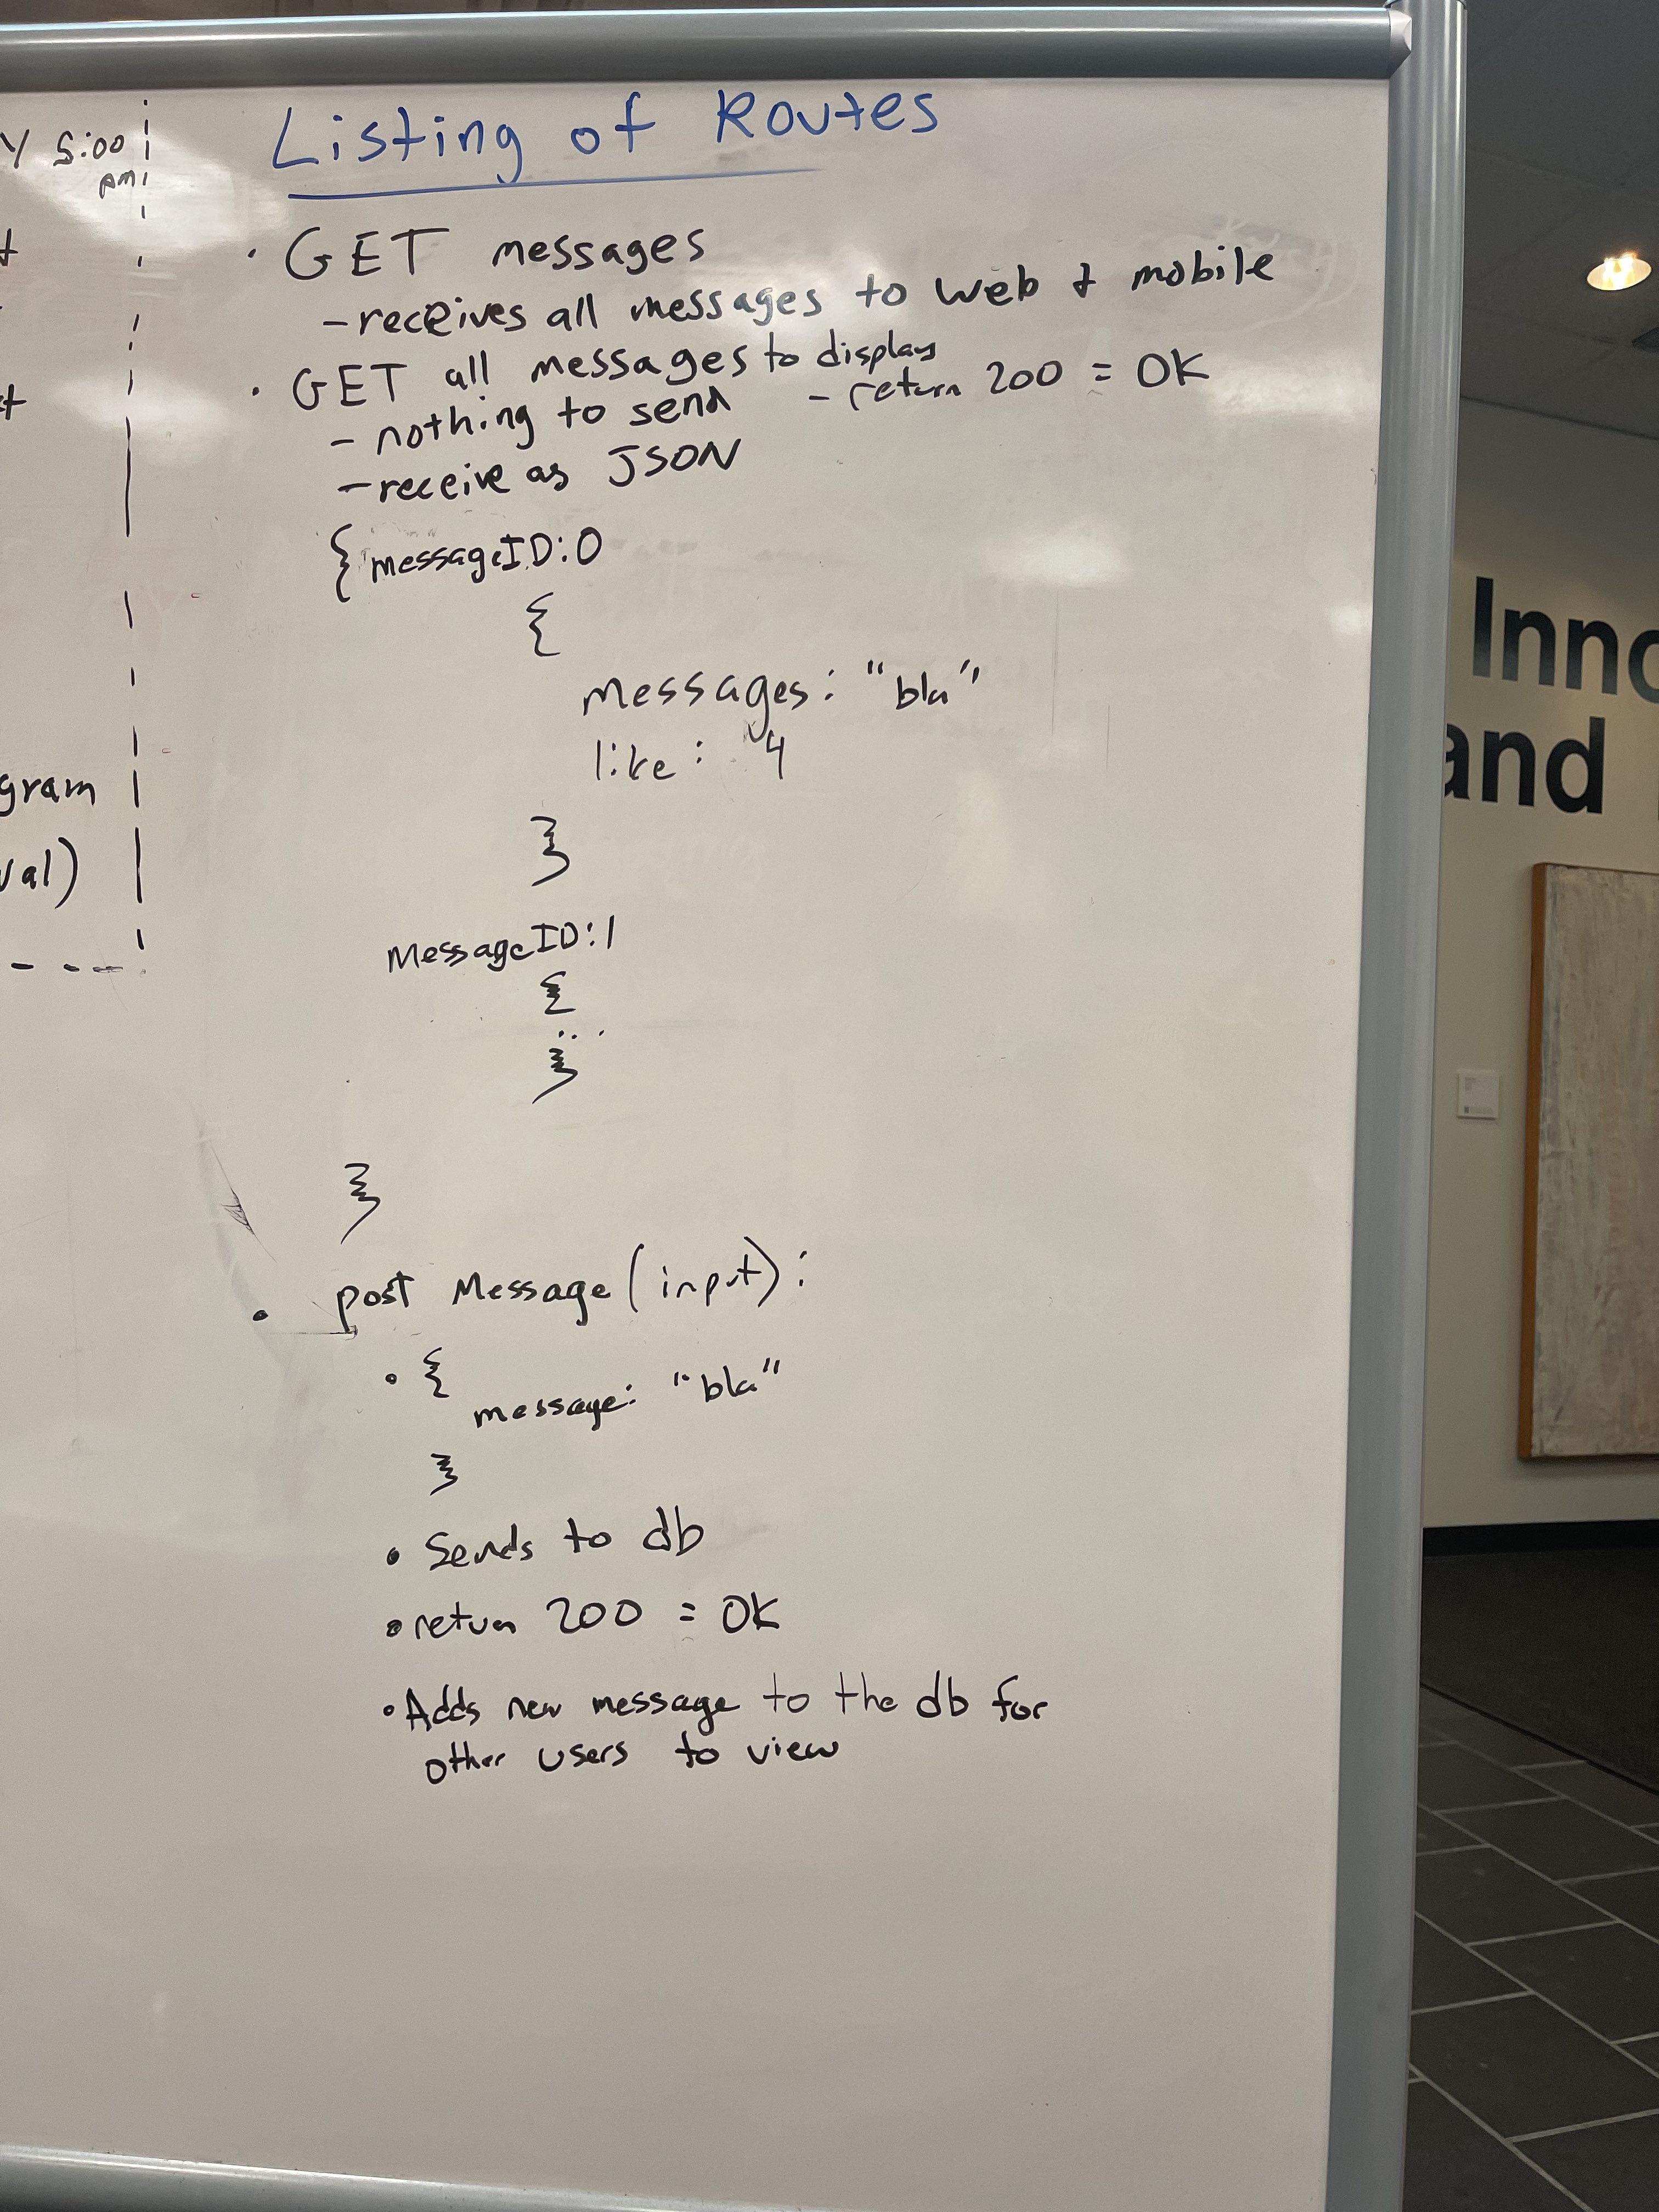 Y 5:00
pm
gram
val)
Listing of Routes
· GET messages
- receives all messages to web & mobile
· GET all messages to display
- nothing to send - return 200 = OK
- receive as JSON
{ messageID:0
{
messages: "bla"
like: 4
}
messageID:1
{
...
}
}
• post Message (input):
• {
message: "bla"
}
• Sends to db
• return 200 = OK
• Adds new message to the db for
other users to view
Inno
and